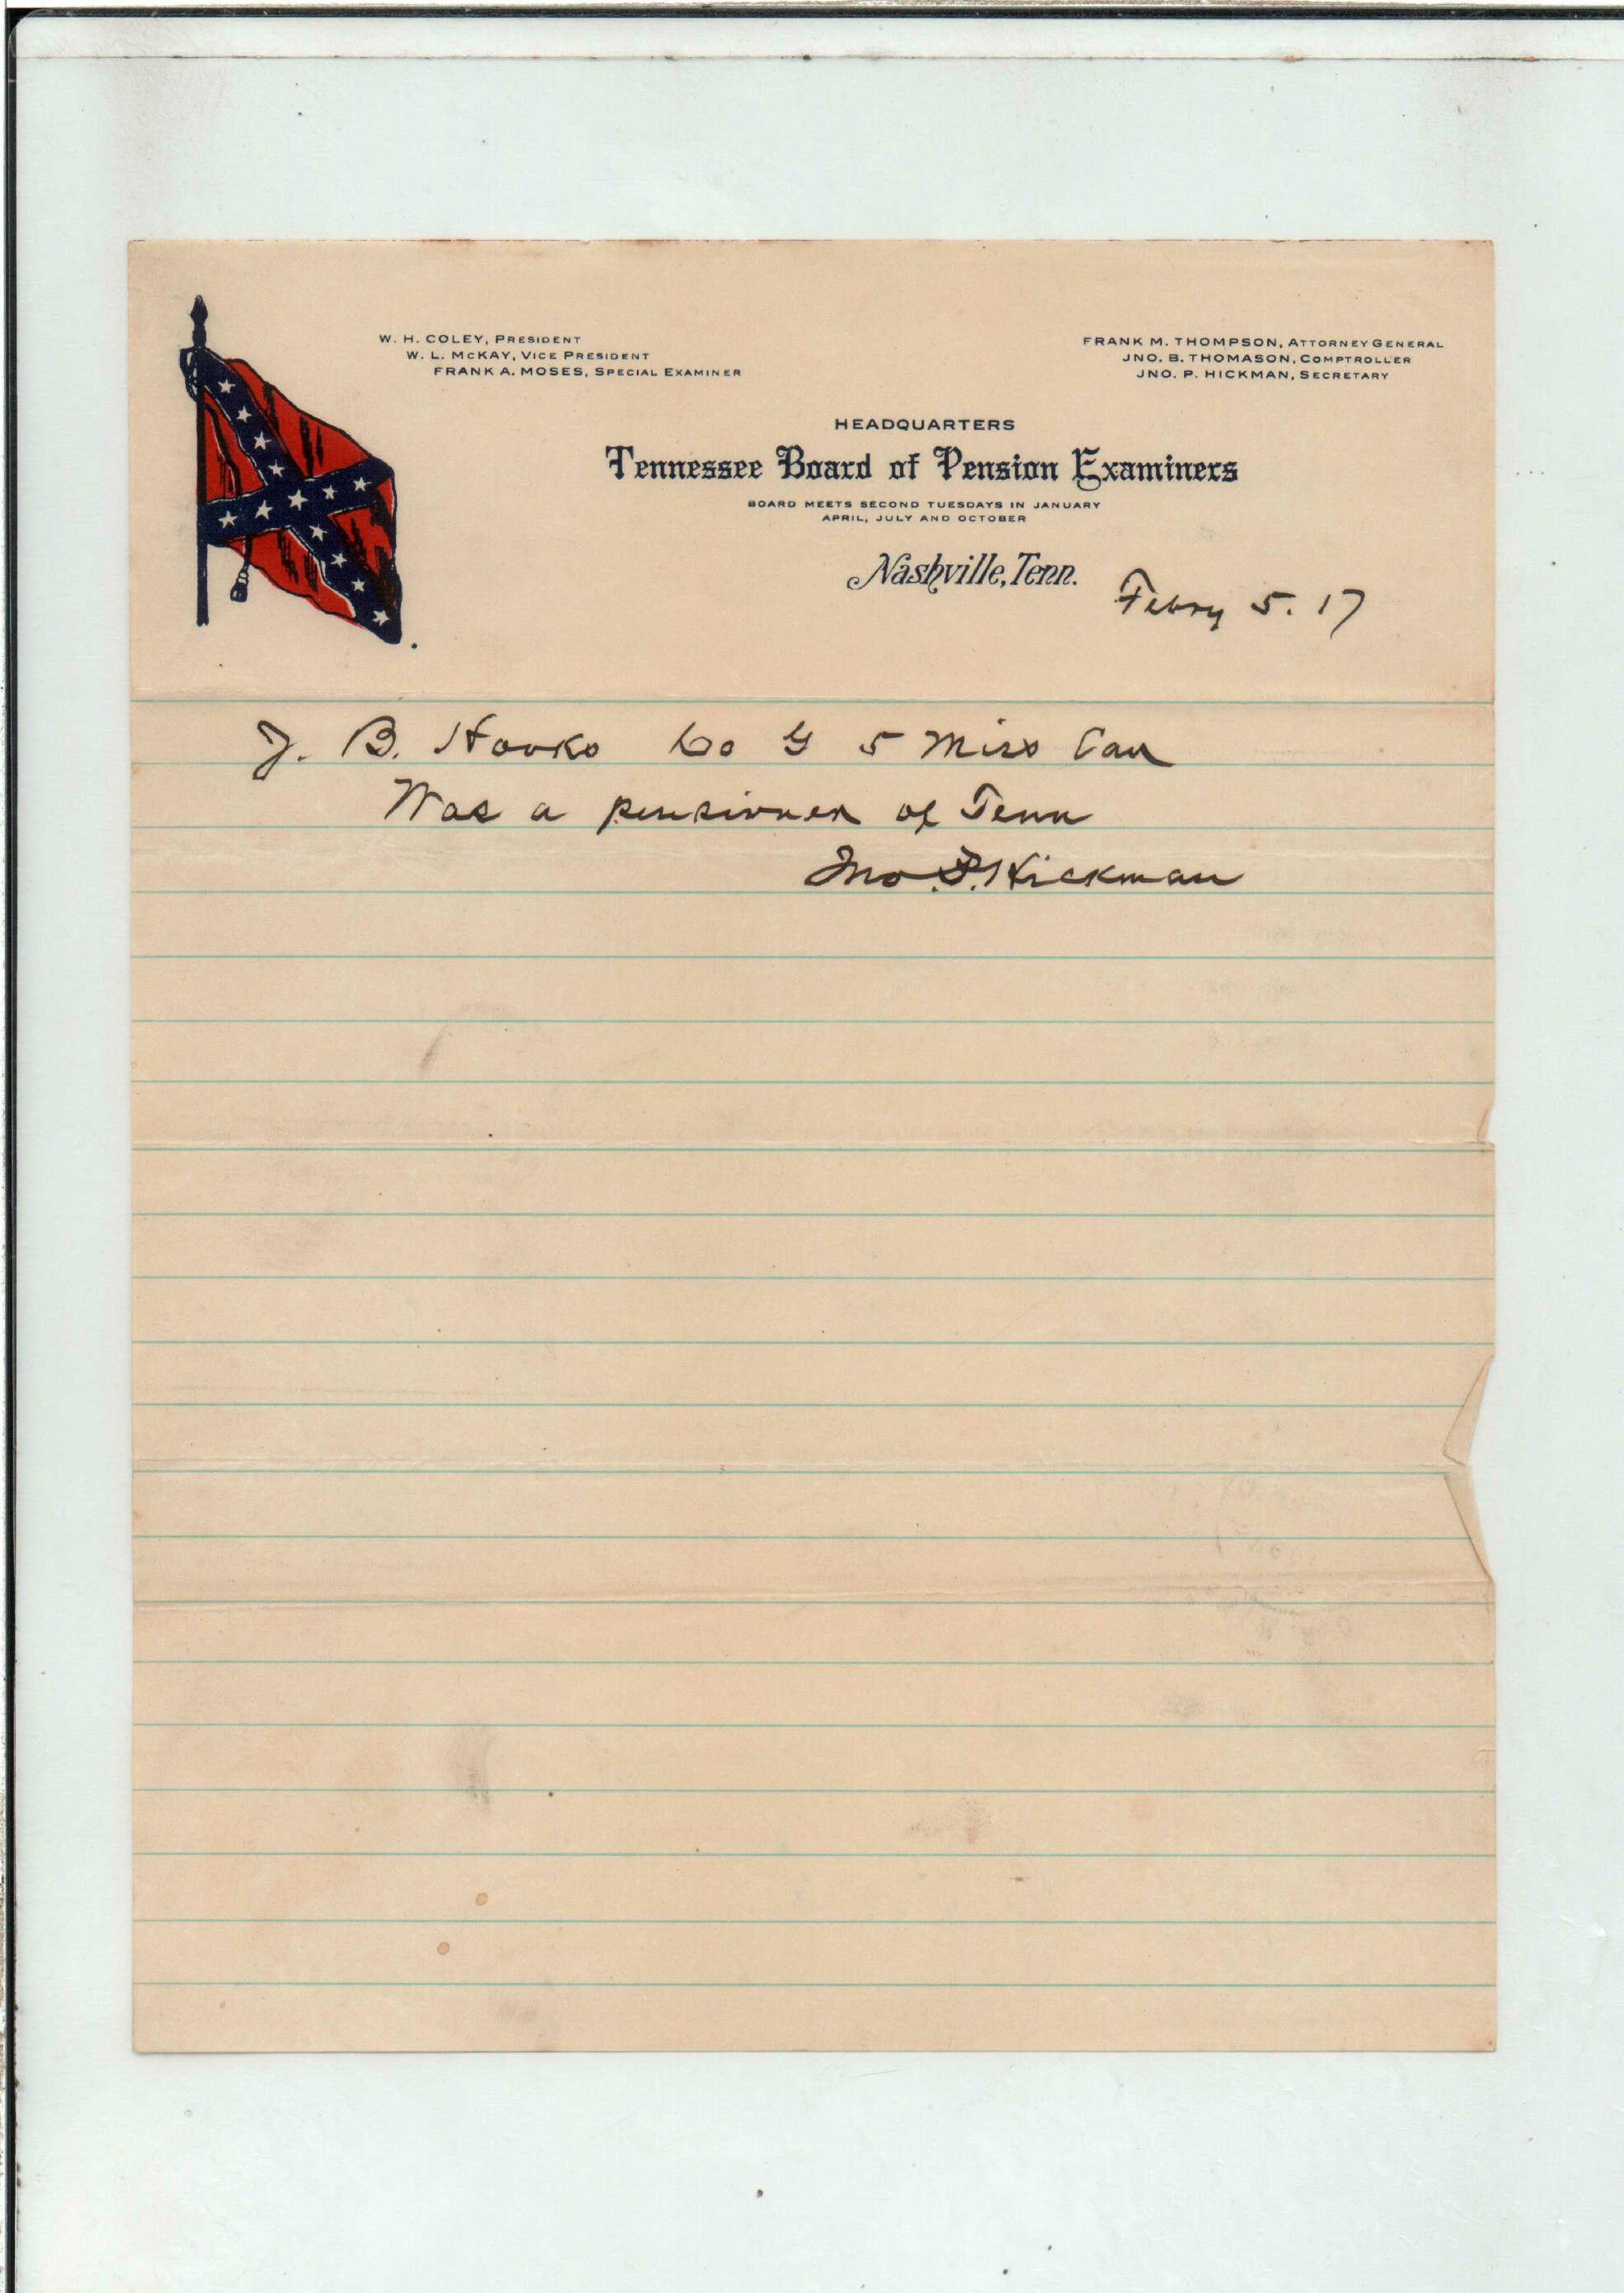 W. H. COLEY, PRESIDENT
W. L. McKAY, VICE PRESIDENT
FRANK A. MOSES, SPECIAL EXAMINER
FRANK M. THOMPSON, ATTORNEY GENERAL
JNO. B. THOMASON, COMPTROLLER
JNO. P. HICKMAN, SECRETARY
HEADQUARTERS
Tennessee Board of Pension Examiners
BOARD MEETS SECOND TUESDAYS IN JANUARY
APRIL, JULY AND OCTOBER
Nashville, Tenn.
Febry 5. 17
J. B. Hooks Co G 5 Miss Cav
Was a pensioner of Tenn
Jno. P. Hickman